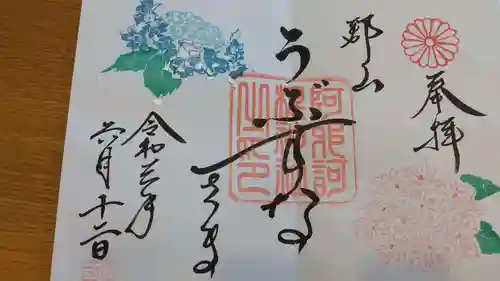 奉拝
郡山
うぶすな
さま
令和三年
六月十二日
阿邪訶
根神社
之印